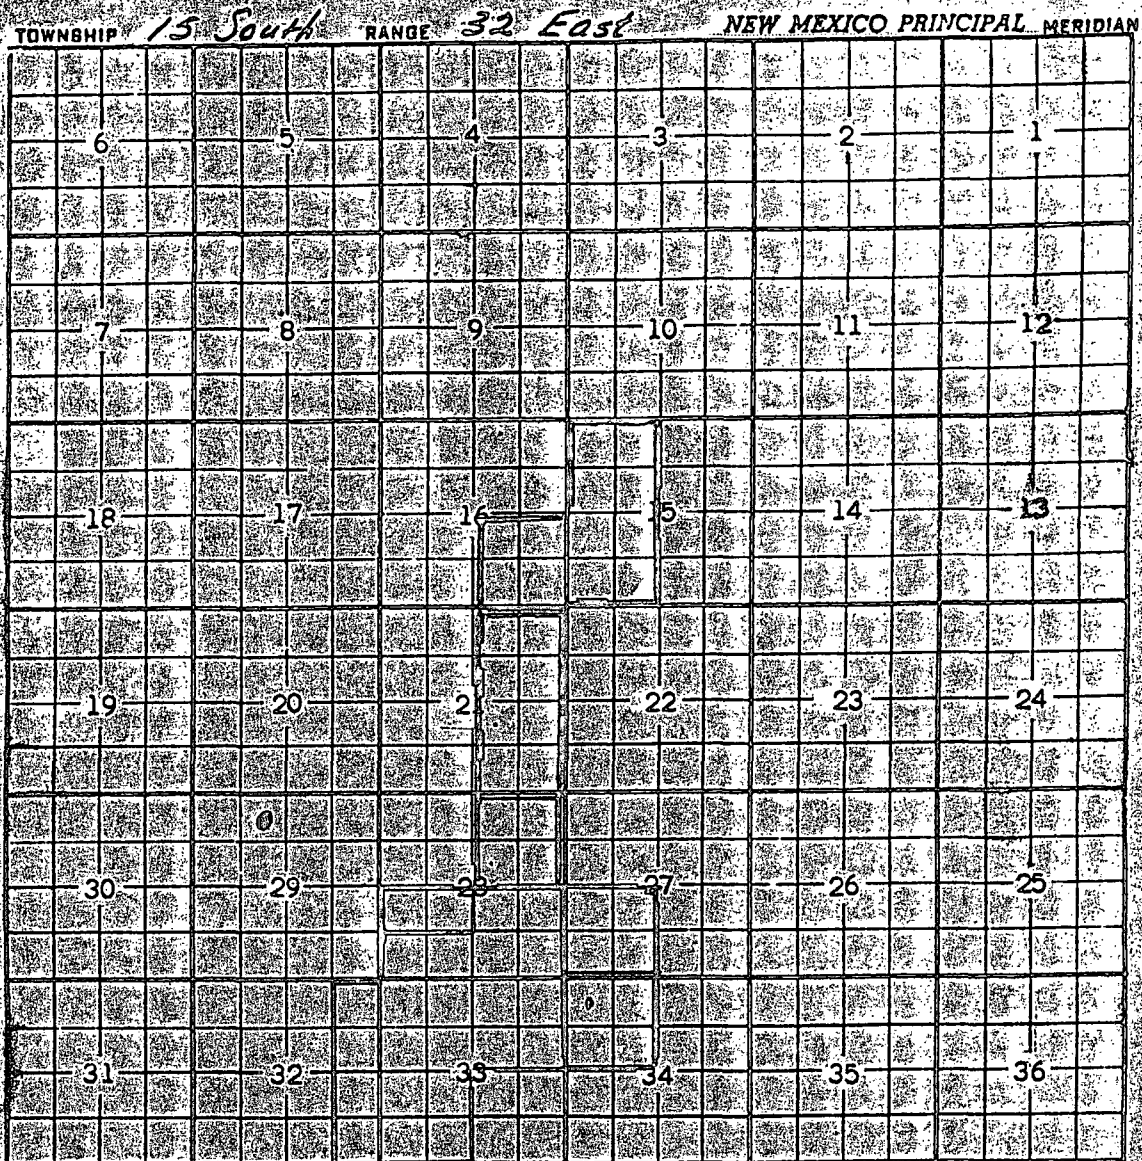 TOWNSHIP 15 South RANGE 32 East NEW MEXICO PRINCIPAL MERIDIAN
6 5 4 3 2 1
7 8 9 10 11 12
18 17 16 15 14 13
19 20 21 22 23 24
30 29 28 27 26 25
31 32 33 34 35 36